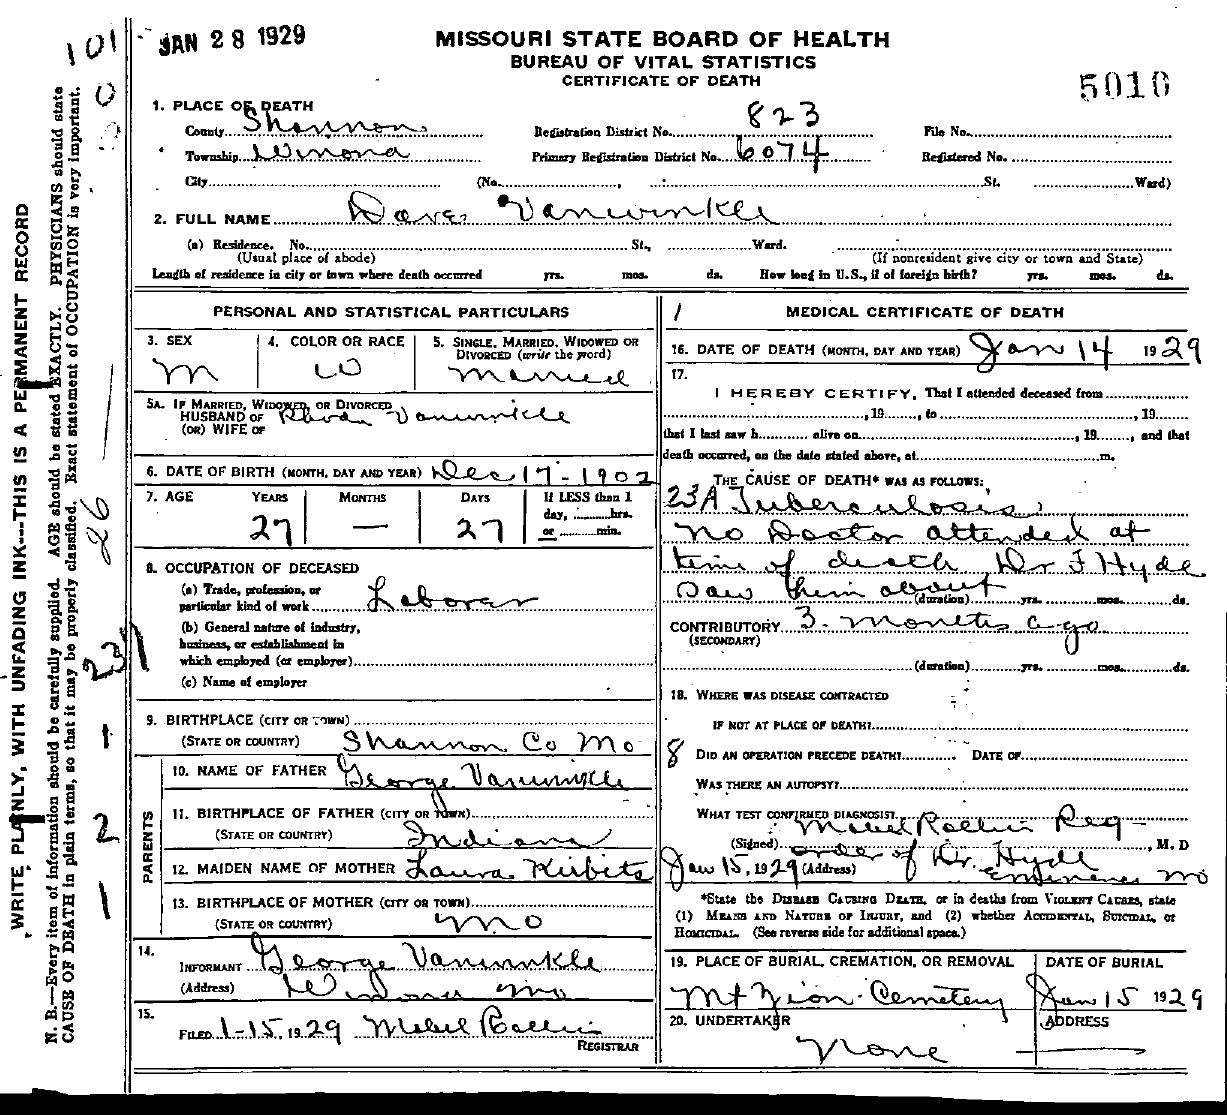 JAN 28 1929
MISSOURI STATE BOARD OF HEALTH
BUREAU OF VITAL STATISTICS
CERTIFICATE OF DEATH
5010
1. PLACE OF DEATH
County Shannon Registration District No. 823 File No.
Township Winona Primary Registration District No. 6074 Registered No.
City (No. , St. Ward)
2. FULL NAME Dave Vanwinkle
(a) Residence. No. St., Ward.
(Usual place of abode) (If nonresident give city or town and State)
Length of residence in city or town where death occurred yrs. mos. ds. How long in U.S., if of foreign birth? yrs. mos. ds.
PERSONAL AND STATISTICAL PARTICULARS
3. SEX 4. COLOR OR RACE 5. SINGLE, MARRIED, WIDOWED OR
DIVORCED (write the word)
M W Married
5A. IF MARRIED, WIDOWED, OR DIVORCED
HUSBAND OF Rhoda Vanwinkle
(OR) WIFE OF
6. DATE OF BIRTH (MONTH, DAY AND YEAR) Dec 17-1902
7. AGE YEARS MONTHS DAYS If LESS than 1
day, hrs.
27 — 27 or min.
8. OCCUPATION OF DECEASED
(a) Trade, profession, or
particular kind of work Laborer
(b) General nature of industry,
business, or establishment in
which employed (or employer)
(c) Name of employer
9. BIRTHPLACE (CITY OR TOWN)
(STATE OR COUNTRY) Shannon Co Mo
PARENTS
10. NAME OF FATHER George Vanwinkle
11. BIRTHPLACE OF FATHER (CITY OR TOWN)
(STATE OR COUNTRY) Indiana
12. MAIDEN NAME OF MOTHER Laura Kirbits
13. BIRTHPLACE OF MOTHER (CITY OR TOWN)
(STATE OR COUNTRY) Mo
14.
INFORMANT George Vanwinkle
(Address) Winona Mo
15.
FILED 1-15, 1929 Mabel Rollins
REGISTRAR
1 MEDICAL CERTIFICATE OF DEATH
16. DATE OF DEATH (MONTH, DAY AND YEAR) Jan 14 1929
17.
I HEREBY CERTIFY, That I attended deceased from
, 19 , to , 19
that I last saw h alive on , 19 , and that
death occurred, on the date stated above, at m.
THE CAUSE OF DEATH* WAS AS FOLLOWS:
23A Tuberculosis
No Doctor attended at
time of death Dr F Hyde
saw them about
(duration) yrs. mos. ds.
CONTRIBUTORY 3. Months ago
(SECONDARY)
(duration) yrs. mos. ds.
18. WHERE WAS DISEASE CONTRACTED
IF NOT AT PLACE OF DEATH?
8 DID AN OPERATION PRECEDE DEATH? DATE OF
WAS THERE AN AUTOPSY?
WHAT TEST CONFIRMED DIAGNOSIS?
Mabel Rollins Reg
(Signed) order of Dr. Hyde , M. D
Jan 15, 1929 (Address) Eminence Mo
*State the DISEASE CAUSING DEATH, or in deaths from VIOLENT CAUSES, state
(1) MEANS AND NATURE OF INJURY, and (2) whether ACCIDENTAL, SUICIDAL, or
HOMICIDAL. (See reverse side for additional space.)
19. PLACE OF BURIAL, CREMATION, OR REMOVAL DATE OF BURIAL
Mt Zion Cemetery Jan 15 1929
20. UNDERTAKER ADDRESS
None —
WRITE PLAINLY, WITH UNFADING INK---THIS IS A PERMANENT RECORD
N. B.—Every item of information should be carefully supplied. AGE should be stated EXACTLY. PHYSICIANS should state
CAUSE OF DEATH in plain terms, so that it may be properly classified. Exact statement of OCCUPATION is very important.
101
0
26
23
1
2
1